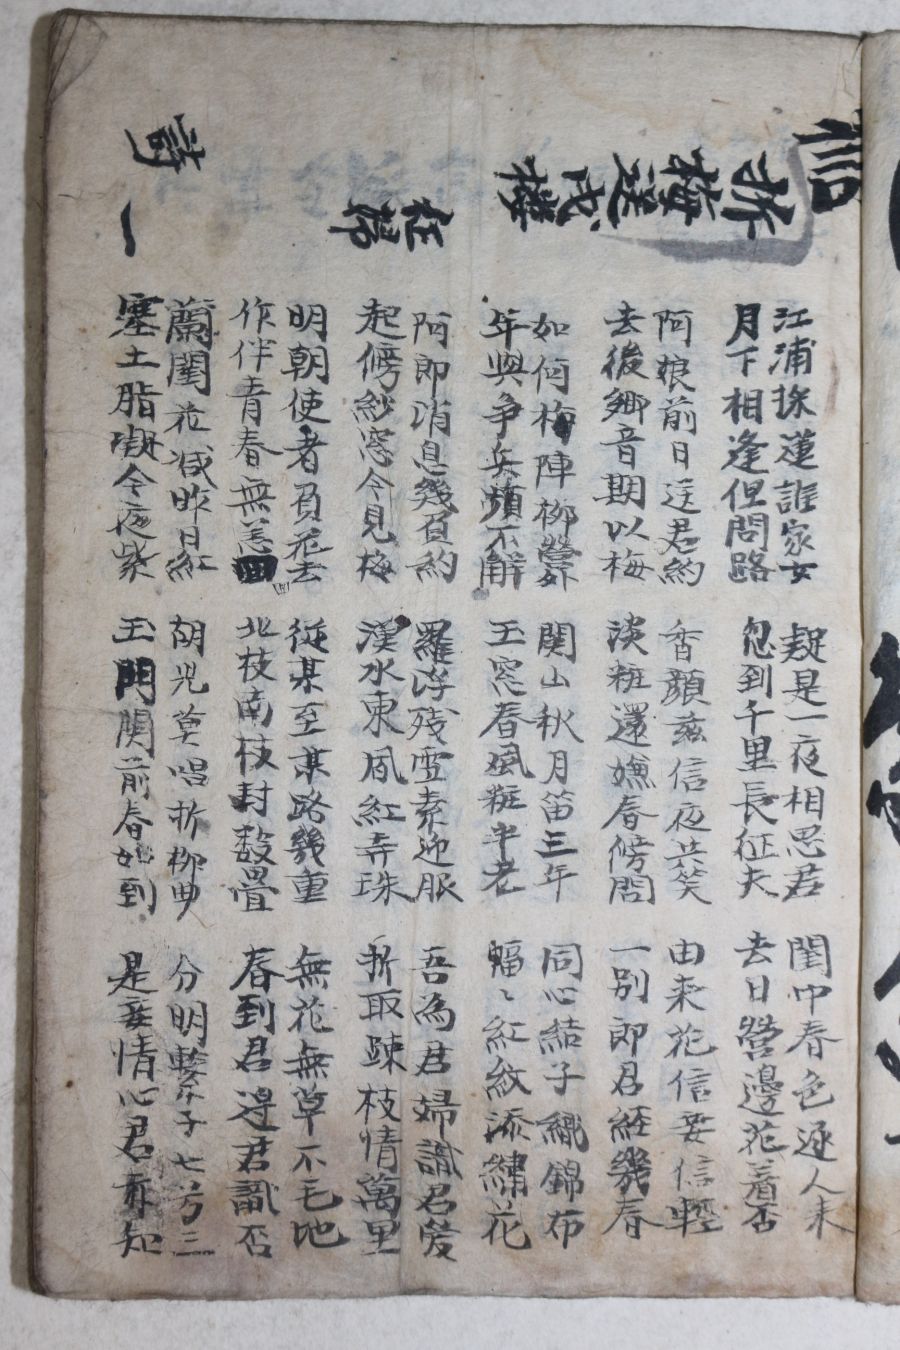 折梅送戍樓
任
詩一
江浦採蓮誰家女 疑是一夜相思君 閨中春色逐人来
月下相逢但問路 忽到千里長征夫 去日營邊花着否
阿娘前日送君約 香顔玆信夜共笑 由来花信妾信輕
去後鄕音期以梅 淡粧還嫌春傍問 一別郎君經幾春
如何梅陣柳營外 関山秋月笛三年 同心結子織錦布
年與争兵頻不解 玉窓春風粧半老 幅〻紅紋添繡花
阿郎消息幾負約 羅浮残雪素迎服 吾為君婦識君爱
起傍紗窓今見梅 漢水東風紅弄珠 折取踈枝情萬里
明朝使者負花去 從某至某路幾重 無花無草不毛地
作伴青春無恙 北枝南枝封数疊 春到君邊君識否
蘭閨花减昨日紅 胡児莫唱折柳曲 分明蘂子七兮三
塞土脂凝今夜紫 玉門関前春如到 是妾情心君亦知